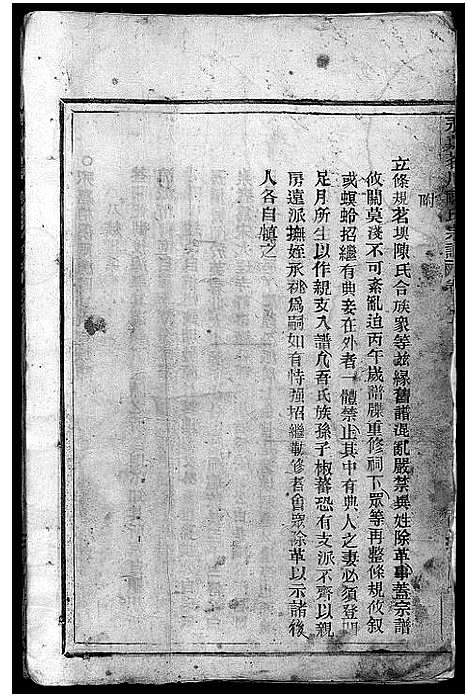 附
立條規茗垻陳氏合族衆等兹緣舊譜混亂嚴禁異姓除革事蓋宗譜
攸關莫淺不可紊亂迨丙午歲譜牒重修祠下眾等再整條規攸叙
或螟蛉招繼有典妾在外者一體禁止其中有典人之妻必須登門
足月所生以作親支入譜凡吾氏族孫子椒蕃恐有支派不齊以親
房遠派撫姪承祧爲嗣如有恃强招繼勒修者會衆除革以示諸後
人各自慎之